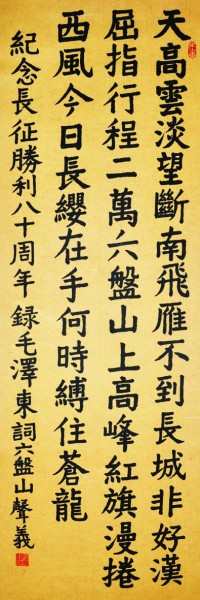 天高雲淡望斷南飛雁不到長城非好漢
屈指行程二萬六盤山上高峰紅旗漫捲
西風今日長纓在手何時縛住蒼龍
紀念長征勝利八十周年錄毛澤東詞六盤山聲義